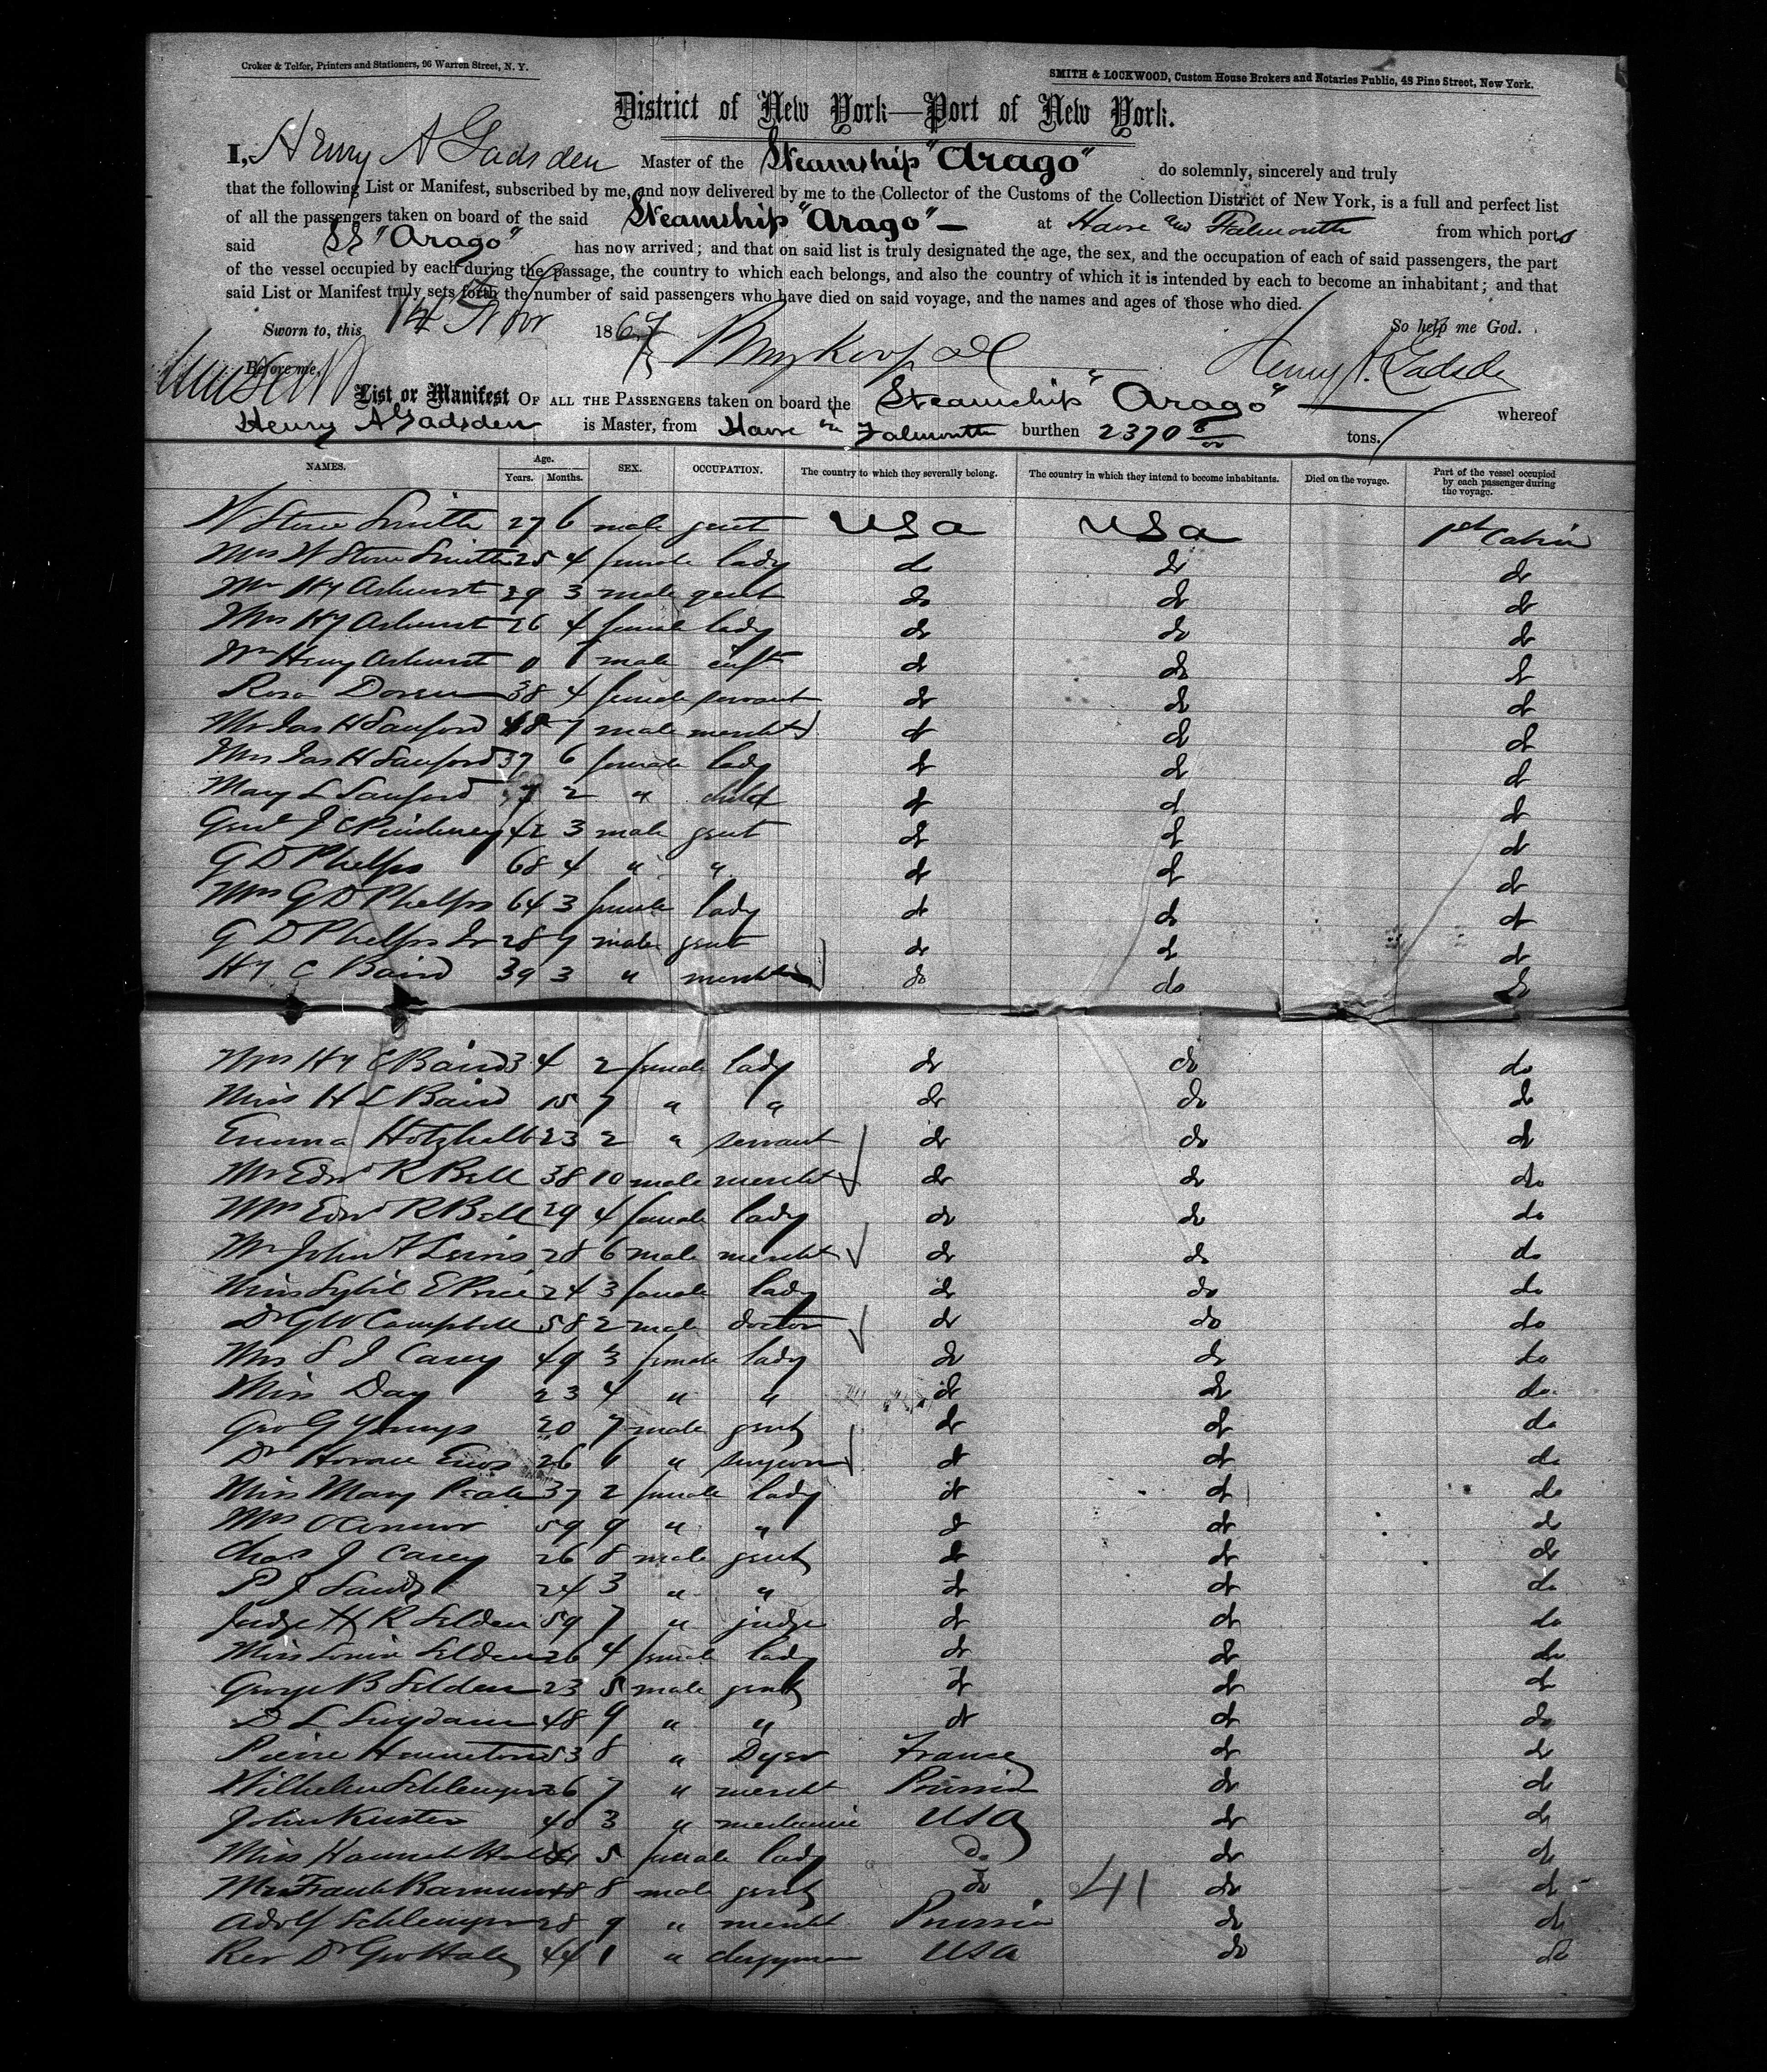 Croker & Telfer, Printers and Stationers, 96 Warren Street, N. Y.
SMITH & LOCKWOOD, Custom House Brokers and Notaries Public, 48 Pine Street, New York.
District of New York—Port of New York.
I, Henry A Gadsden Master of the Steamship "Arago" do solemnly, sincerely and truly
that the following List or Manifest, subscribed by me, and now delivered by me to the Collector of the Customs of the Collection District of New York, is a full and perfect list
of all the passengers taken on board of the said Steamship "Arago" — at Havre and Falmouth from which ports
said SS "Arago" has now arrived; and that on said list is truly designated the age, the sex, and the occupation of each of said passengers, the part
of the vessel occupied by each during the passage, the country to which each belongs, and also the country of which it is intended by each to become an inhabitant; and that
said List or Manifest truly sets forth the number of said passengers who have died on said voyage, and the names and ages of those who died.
Sworn to, this 14 Nov 1867 So help me God.
Before me, Henry A. Gadsden
List or Manifest OF ALL THE PASSENGERS taken on board the Steamship "Arago" whereof
Henry A Gadsden is Master, from Havre Falmouth burthen 2370 tons.
NAMES. Age. Years. Months. SEX. OCCUPATION. The country to which they severally belong. The country in which they intend to become inhabitants. Died on the voyage. Part of the vessel occupied by each passenger during the voyage.
W Stone Smith 27 6 male gent USA USA 1st Cabin
Mrs W Stone Smith 25 4 female lady do do do
Mr Hy Ashurst 29 3 male gent do do do
Mrs Hy Ashurst 26 4 female lady do do do
Wm Henry Ashurst 0 male inft do do do
Rosa 38 4 female servant do do do
Mr Jas H Sanford 48 7 male mercht do do do
Mrs Jas H Sanford 37 6 female lady do do do
Mary L Sanford 7 2 " child do do do
Genl J C Pinckney 42 3 male gent do do do
G D Phelps 68 4 " " do do do
Mrs G D Phelps 64 3 female lady do do do
G D Phelps Jr 28 7 male gent do do do
Hy C Baird 39 3 " mercht do do do
Mrs Hy C Baird 34 2 female lady do do do
Miss H L Baird 15 7 " " do do do
Emma 23 2 " servant do do do
Mr Edwd R Bell 38 10 male mercht do do do
Mrs Edwd R Bell 29 4 female lady do do do
Mr John A Lewis 28 6 male mercht do do do
Miss Sybil E Price 24 3 female lady do do do
Dr G W Campbell 58 2 male doctor do do do
Mrs S J Casey 49 3 female lady do do do
Miss Day 23 4 " " do do do
Geo G 20 7 male gent do do do
Dr Horace Enos 26 6 " surgeon do do do
Miss Mary Peale 37 2 female lady do do do
Mrs OConnor 59 9 " " do do do
Chas J Casey 26 8 male gent do do do
P J Sands 24 3 " " do do do
Judge H R Selden 59 7 " judge do do do
Miss Louise Selden 26 4 female lady do do do
George B Selden 23 5 male gent do do do
D L Suydam 48 9 " " do do do
Pierre 53 8 " Dyer France do do
Wilhelm Schlemmer 26 7 " mercht Prussia do do
John Kuster 40 3 " mechanic USA do do
Miss Hannah 5 female lady do do do
Mr Frank 48 8 male gent do 41 do do
Adolf Schlemmer 28 9 " mercht Prussia do do
Rev Dr Geo Hale 44 1 " clergyman USA do do